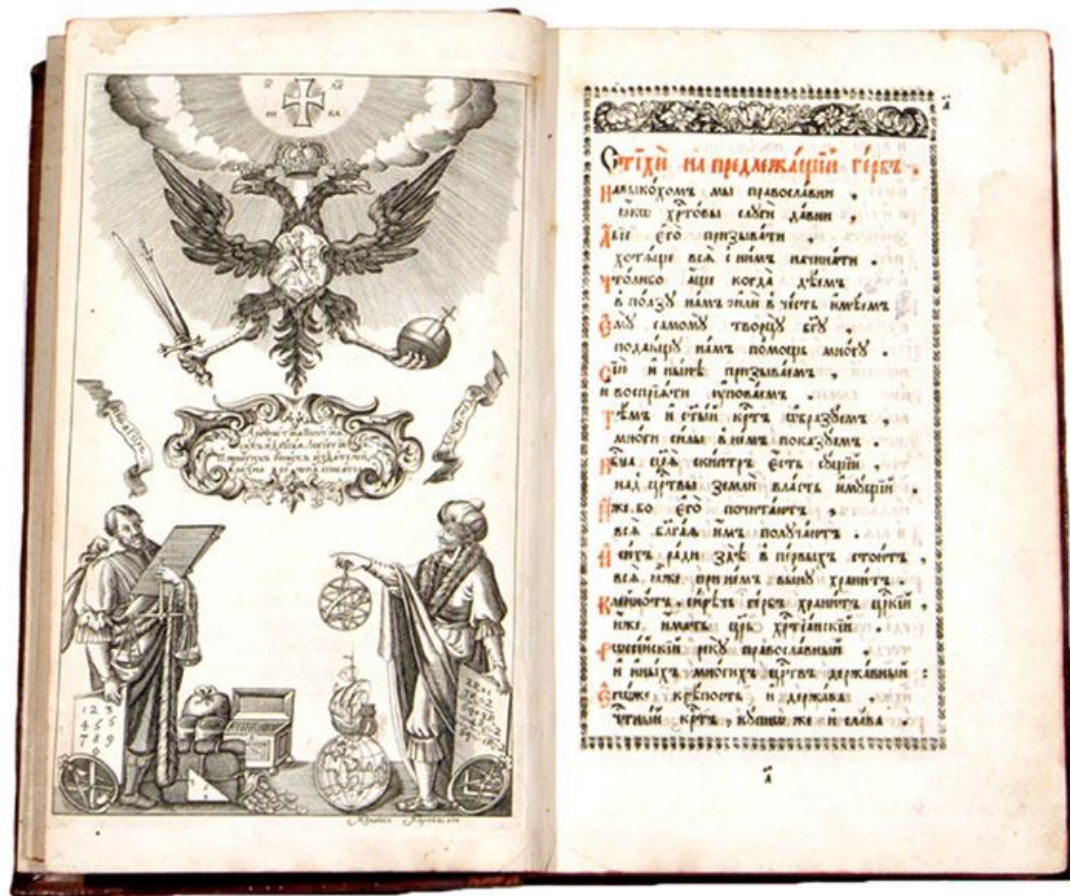 ІС ХС
НИ КА
Архимедъ
Многихъ иныхъ издателей
времена писател
1 2 3
4 5 6
7 8 9
0
Стїхѝ на предлежа́щїй ге́рбъ .
Навыко́хомъ мы̀ правосла́вни ,
ꙗ́кѡ хр҃то́вы слꙋги̑ да́вни ,
А҆́бїе є҆го̀ призыва́ти ,
хотѧ́ще всѧ̑ с̾ни́мъ начина́ти .
Что́либо а҆́ще когда̀ дѣ́емъ
в̾ по́лзꙋ на́мъ и҆лѝ в̾ че́сть и҆мѣ́емъ
Є҆мꙋ̀ самомꙋ̀ творцꙋ̀ бг҃ꙋ ,
подаю́щꙋ на́мъ по́мощь мно́гꙋ .
Сїѐ и҆ ны́нѣ призыва́емъ ,
и҆ воспрїѧ́ти ᲂу҆пова́емъ .
Тѣ́мъ и҆ ст҃ы́й кр҃тъ ѡ҆бразꙋ́емъ ,
мно́ги си́лы в̾ не́мъ показꙋ́емъ .
Нбⷭ҇на цр҃ѧ̀ ски́птръ є҆́сть сꙋ́щїй ,
над̾ црⷭ҇твы землѝ вла́сть и҆мꙋ́щїй .
И҆́же бо є҆го̀ почита́ютъ ,
всѧ̑ бл҃га́ѧ и҆̀мъ полꙋча́ютъ .
И҆ си́хъ ра́ди здѣ̀ в̾ пе́рвыхъ стои́тъ ,
всѧ̑ ꙗ҆́же при не́мъ вы́нꙋ храни́тъ .
Клейно́тъ си́рѣчь ге́рбъ храни́тъ цр҃кїй ,
и҆́же и҆́мать цр҃ь хр҃тїа́нскїй .
Рѡссі́йскїй рекꙋ̀ правосла́вный
и҆ и҆ны́хъ мно́гихъ црⷭ҇твъ держа́вный :
Є҆гѡ́же крѣ́пость и҆ держа́ва
чтⷭ҇ны́й кр҃тъ кꙋ́пнѡ же и҆ сла́ва .
а҃